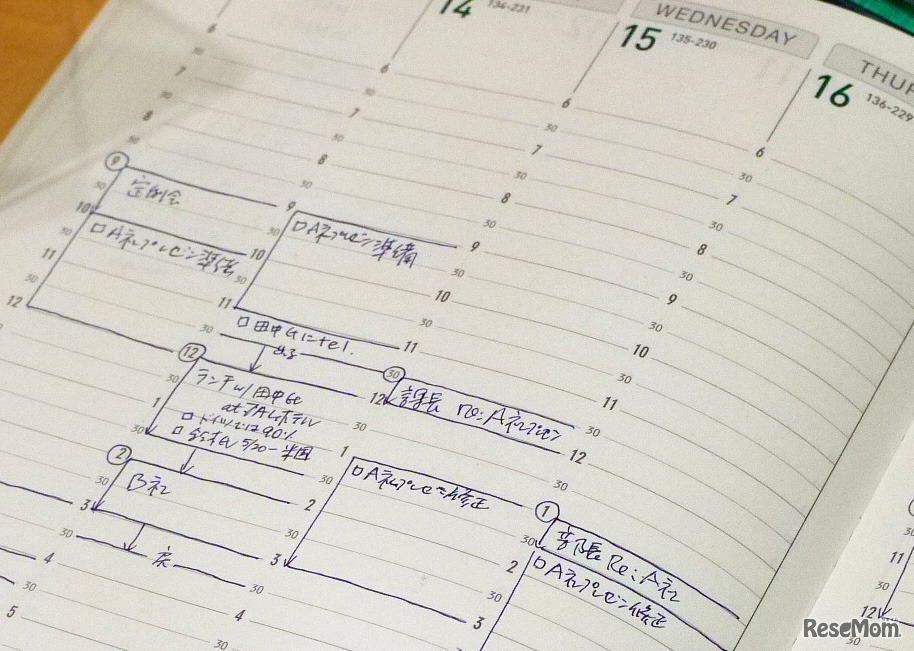 14 134-231
WEDNESDAY
15 135-230
THUR
16 136-229
6
7
30
8
30
⑨
定例会
30
10
□A社プレゼン準備
30
11
30
12
6
30
7
30
8
30
9
□A社プレゼン準備
30
10
30
11
□田中Gにtel.
30
⑫
ランチw/田中G
at JALホテル
1
30
②
B社
30
3
戻
30
4
30
5
6
30
7
30
8
30
9
30
10
30
11
㉚
課長 re:A社プレゼン
12
30
1
□A社プレゼン修正
30
2
30
3
30
4
6
30
7
30
8
30
9
30
10
30
11
30
12
30
①
部長 Re:A社
30
□A社プレゼン修正
2
30
3
30
11
30
12
ReseMom.